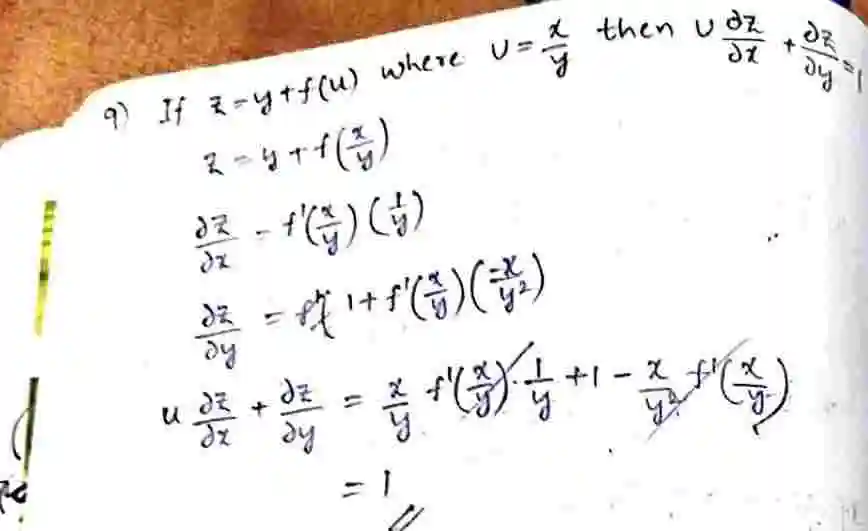 9) If z=y+f(u) where u=x/y then u ∂z/∂x + ∂z/∂y =1
z = y + f(x/y)
∂z/∂x = f'(x/y) (1/y)
∂z/∂y = 1+f'(x/y)(-x/y²)
u ∂z/∂x + ∂z/∂y = x/y f'(x/y)·1/y +1 - x/y² f'(x/y)
= 1